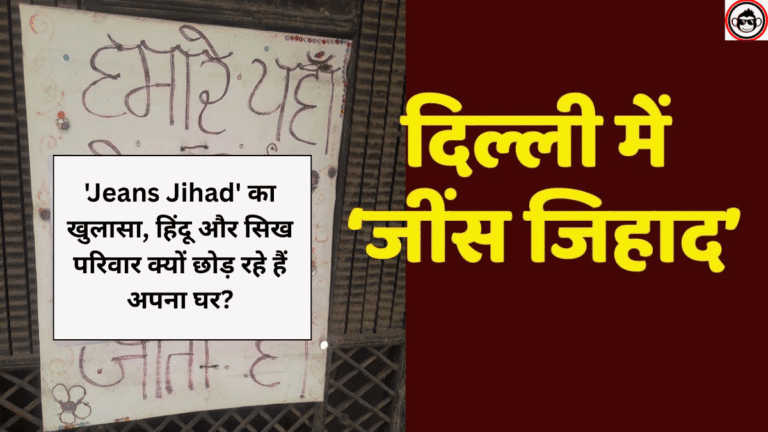 हमारे यहाँ
'Jeans Jihad' का
खुलासा, हिंदू और सिख
परिवार क्यों छोड़ रहे हैं
अपना घर?
जाता है।
दिल्ली में
‘जींस जिहाद’